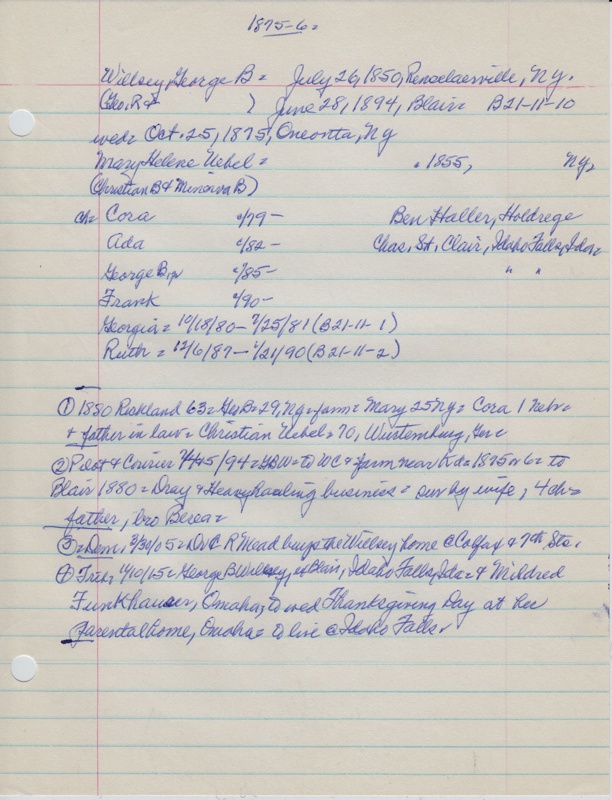 1875-6=
Willsey, George B= July 26, 1850, Renselaerville, Ny.
(Geo. R + ) June 28, 1894, Blair= B21-11-10
wed= Oct. 25, 1875, Oneonta, Ny
Mary Helene Uebel= 1855, Ny,
(Christian B + Minerva B)
ch= Cora c/79- Ben Haller, Holdrege
Ada c/82- Chas. St. Clair, Idaho Falls, Ida=
George B, jr c/85- " "
Frank c/90-
Georgia= 10/18/80- 7/25/81 (B21-11-1)
Ruth= 12/6/87- 1/21/90 (B21-11-2)
① 1880 Richland 63= Geo B= 29, Ny= farm= Mary 25 Ny= Cora 1 Nebr=
+ father in law= Christian Uebel= 70, Wurtemburg, Ger=
② Pilot & Courier /94= GBW= to WC & farm near Ka= 1875 or 6= to
Blair 1880= Dray & Heavy hauling business= sur by wife, 4 ch=
father, bro Berea=
③= Dem, 3/30/05= Dr C R Mead buys the Willsey home @ Colfax & 7th Sts.
④ Trib= 9/10/15= George B Willsey, of Blair, Idaho Falls, Ida= & Mildred
Funkhauser, Omaha, to wed Thanksgiving Day at her
parental home, Omaha= to live @ Idaho Falls.